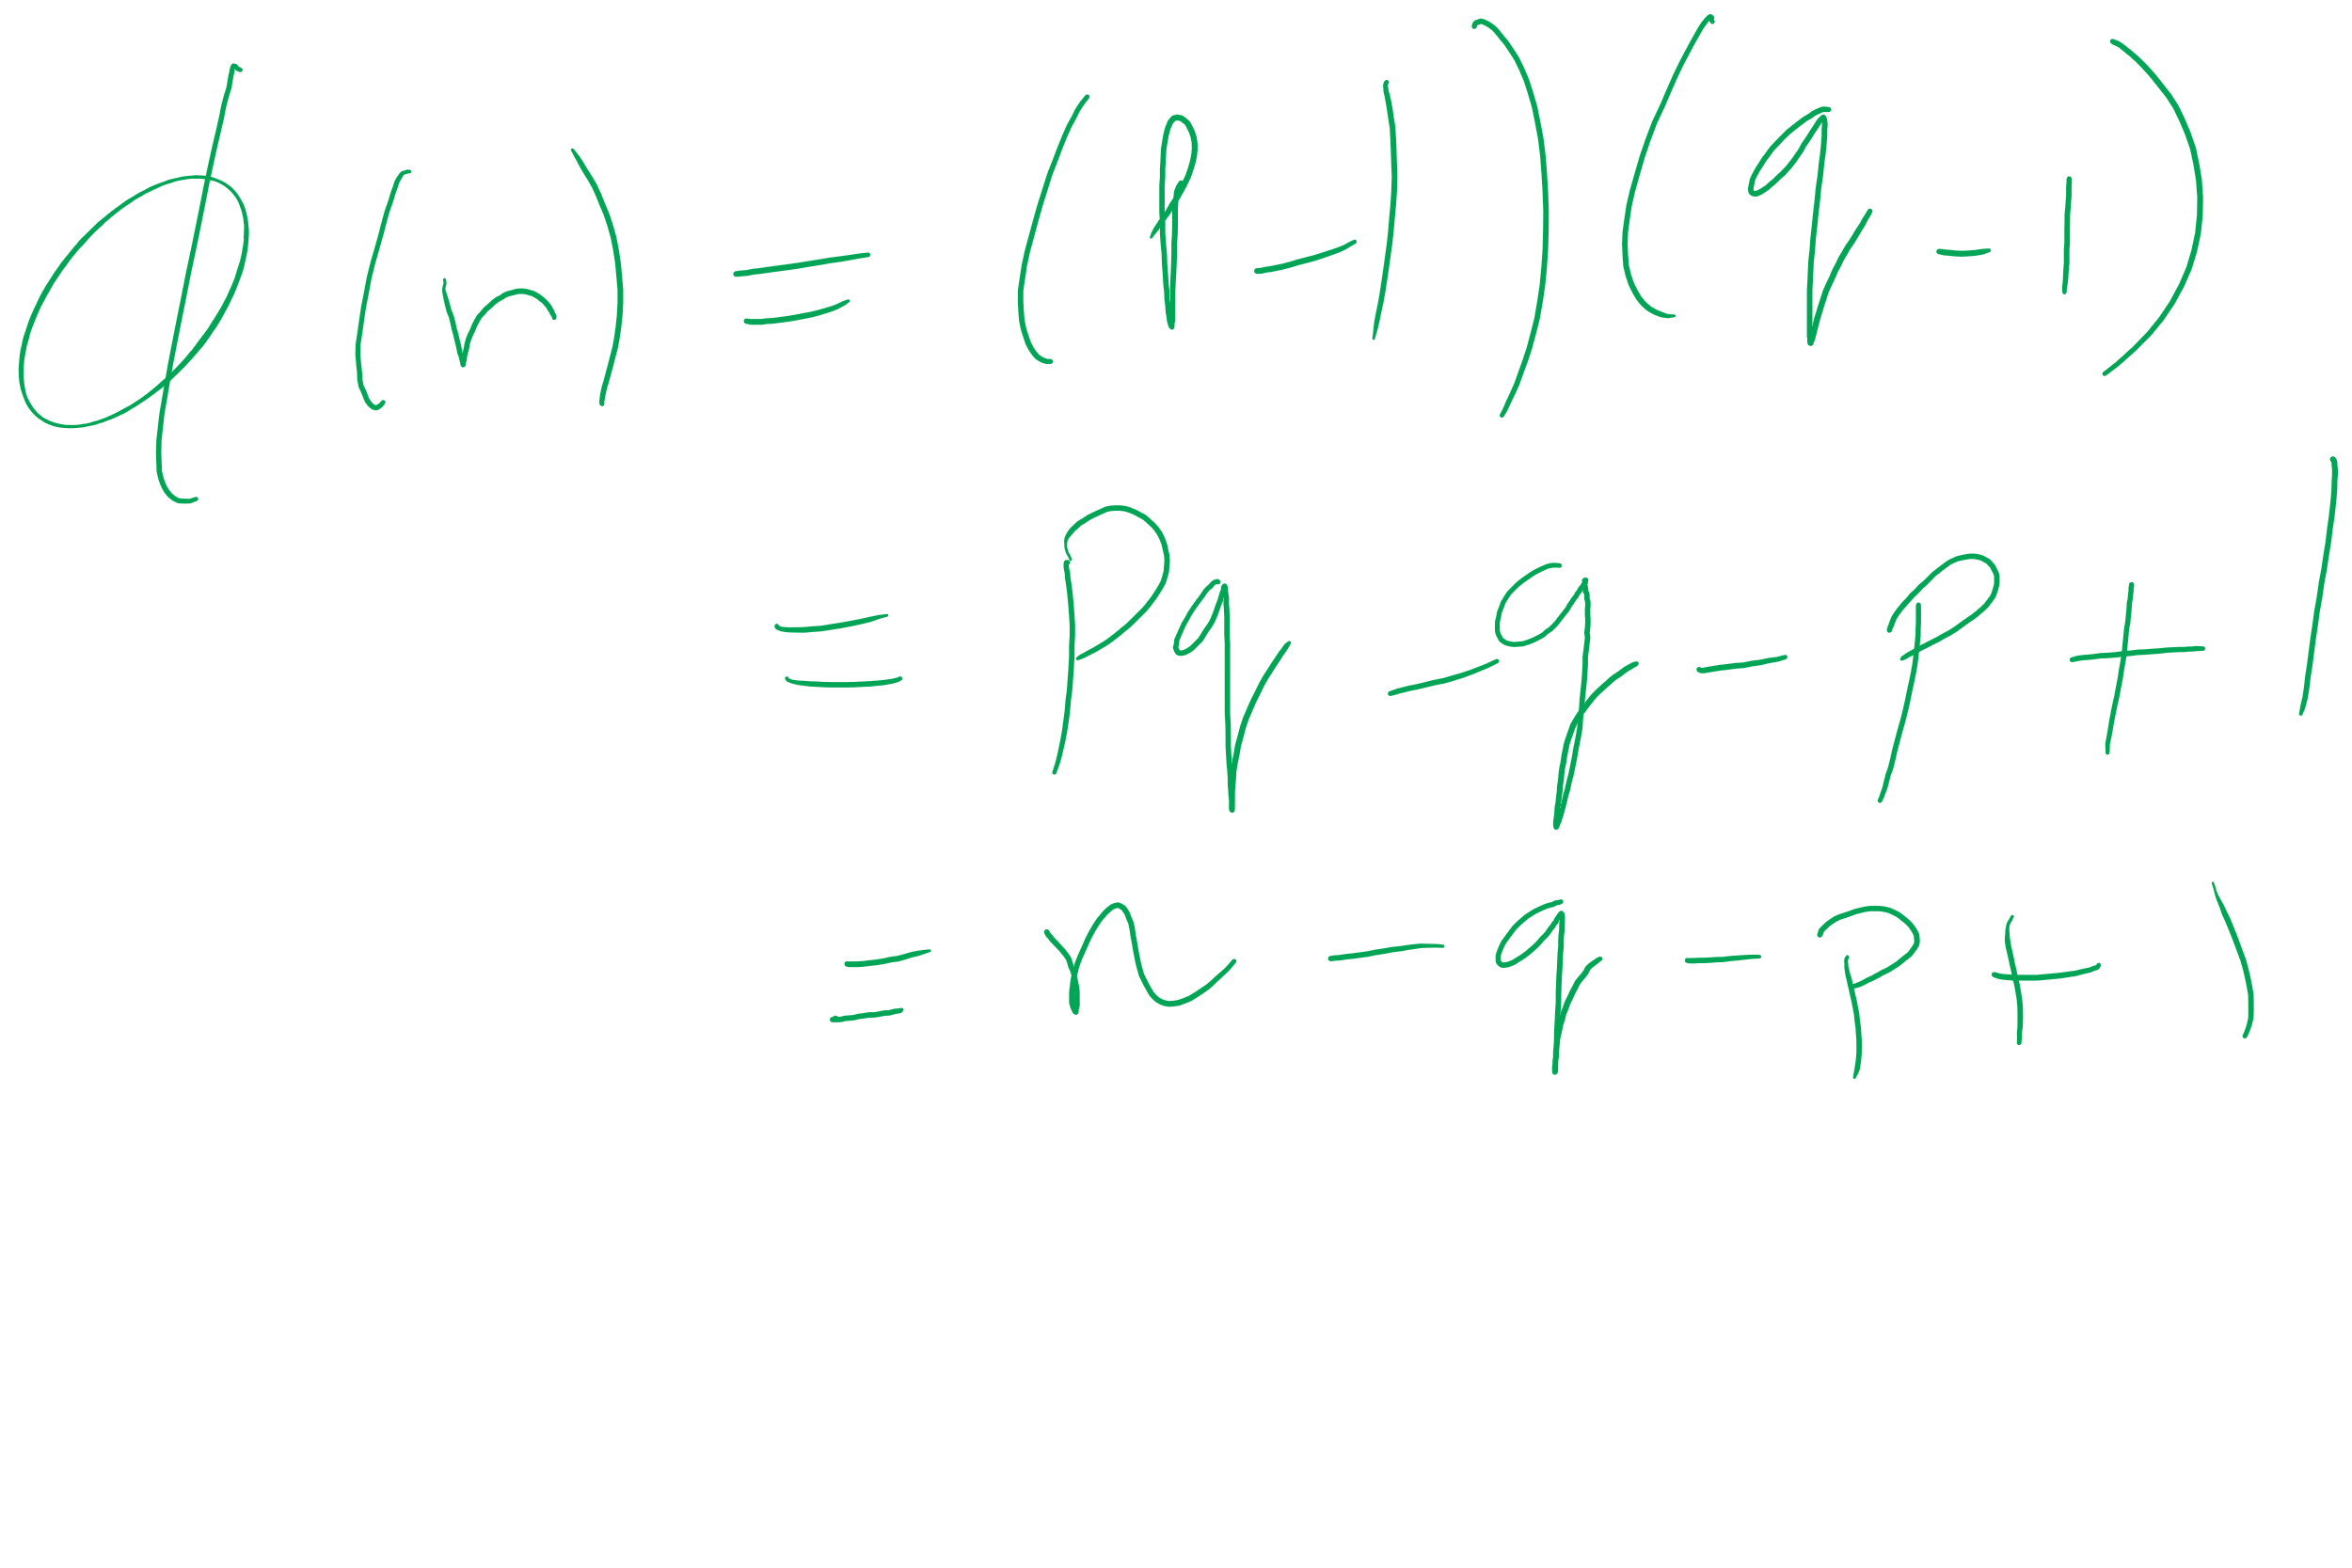 ϕ(n) = (p-1)(q-1)
= pq - q - p + 1
= n - q - p + 1